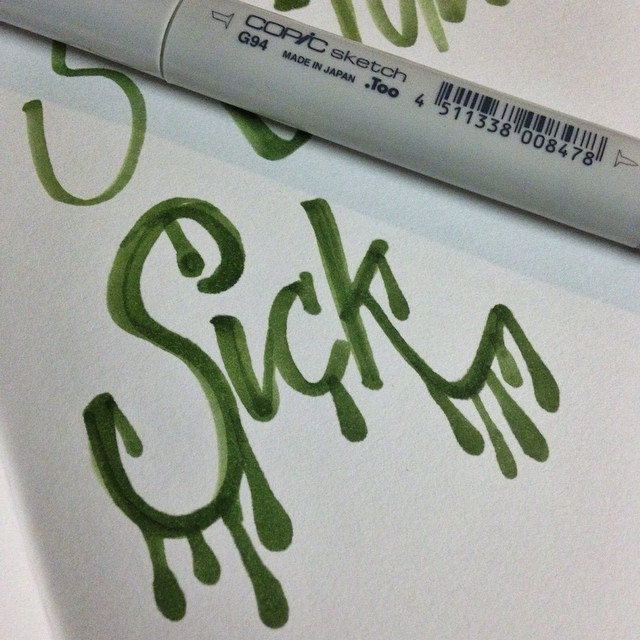 COPIC sketch
G94 MADE IN JAPAN .Too 4 511338 008478
Sick